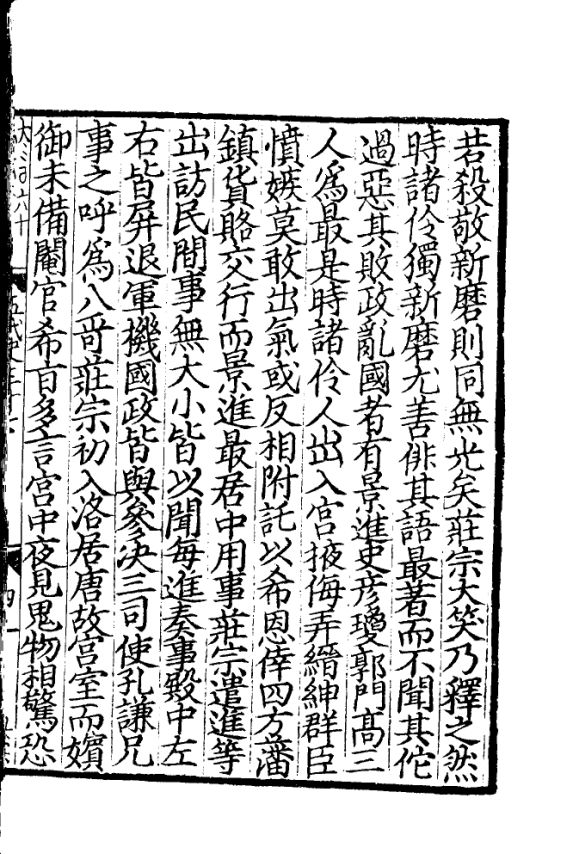 若殺敬新磨則同無光矣莊宗大笑乃釋之然
時諸伶獨新磨尤善俳其語最著而不聞其佗
過惡其敗政亂國者有景進史彥瓊郭門高三
人爲最是時諸伶人出入宮掖侮弄縉紳群臣
憤嫉莫敢出氣或反相附託以希恩倖四方藩
鎮貨賂交行而景進最居中用事莊宗遣進等
出訪民間事無大小皆以聞每進奏事殿中左
右皆屏退軍機國政皆與參決三司使孔謙兄
事之呼爲八哥莊宗初入洛居唐故宮室而嬪
御未備閹官希百多言宮中夜見鬼物相驚恐